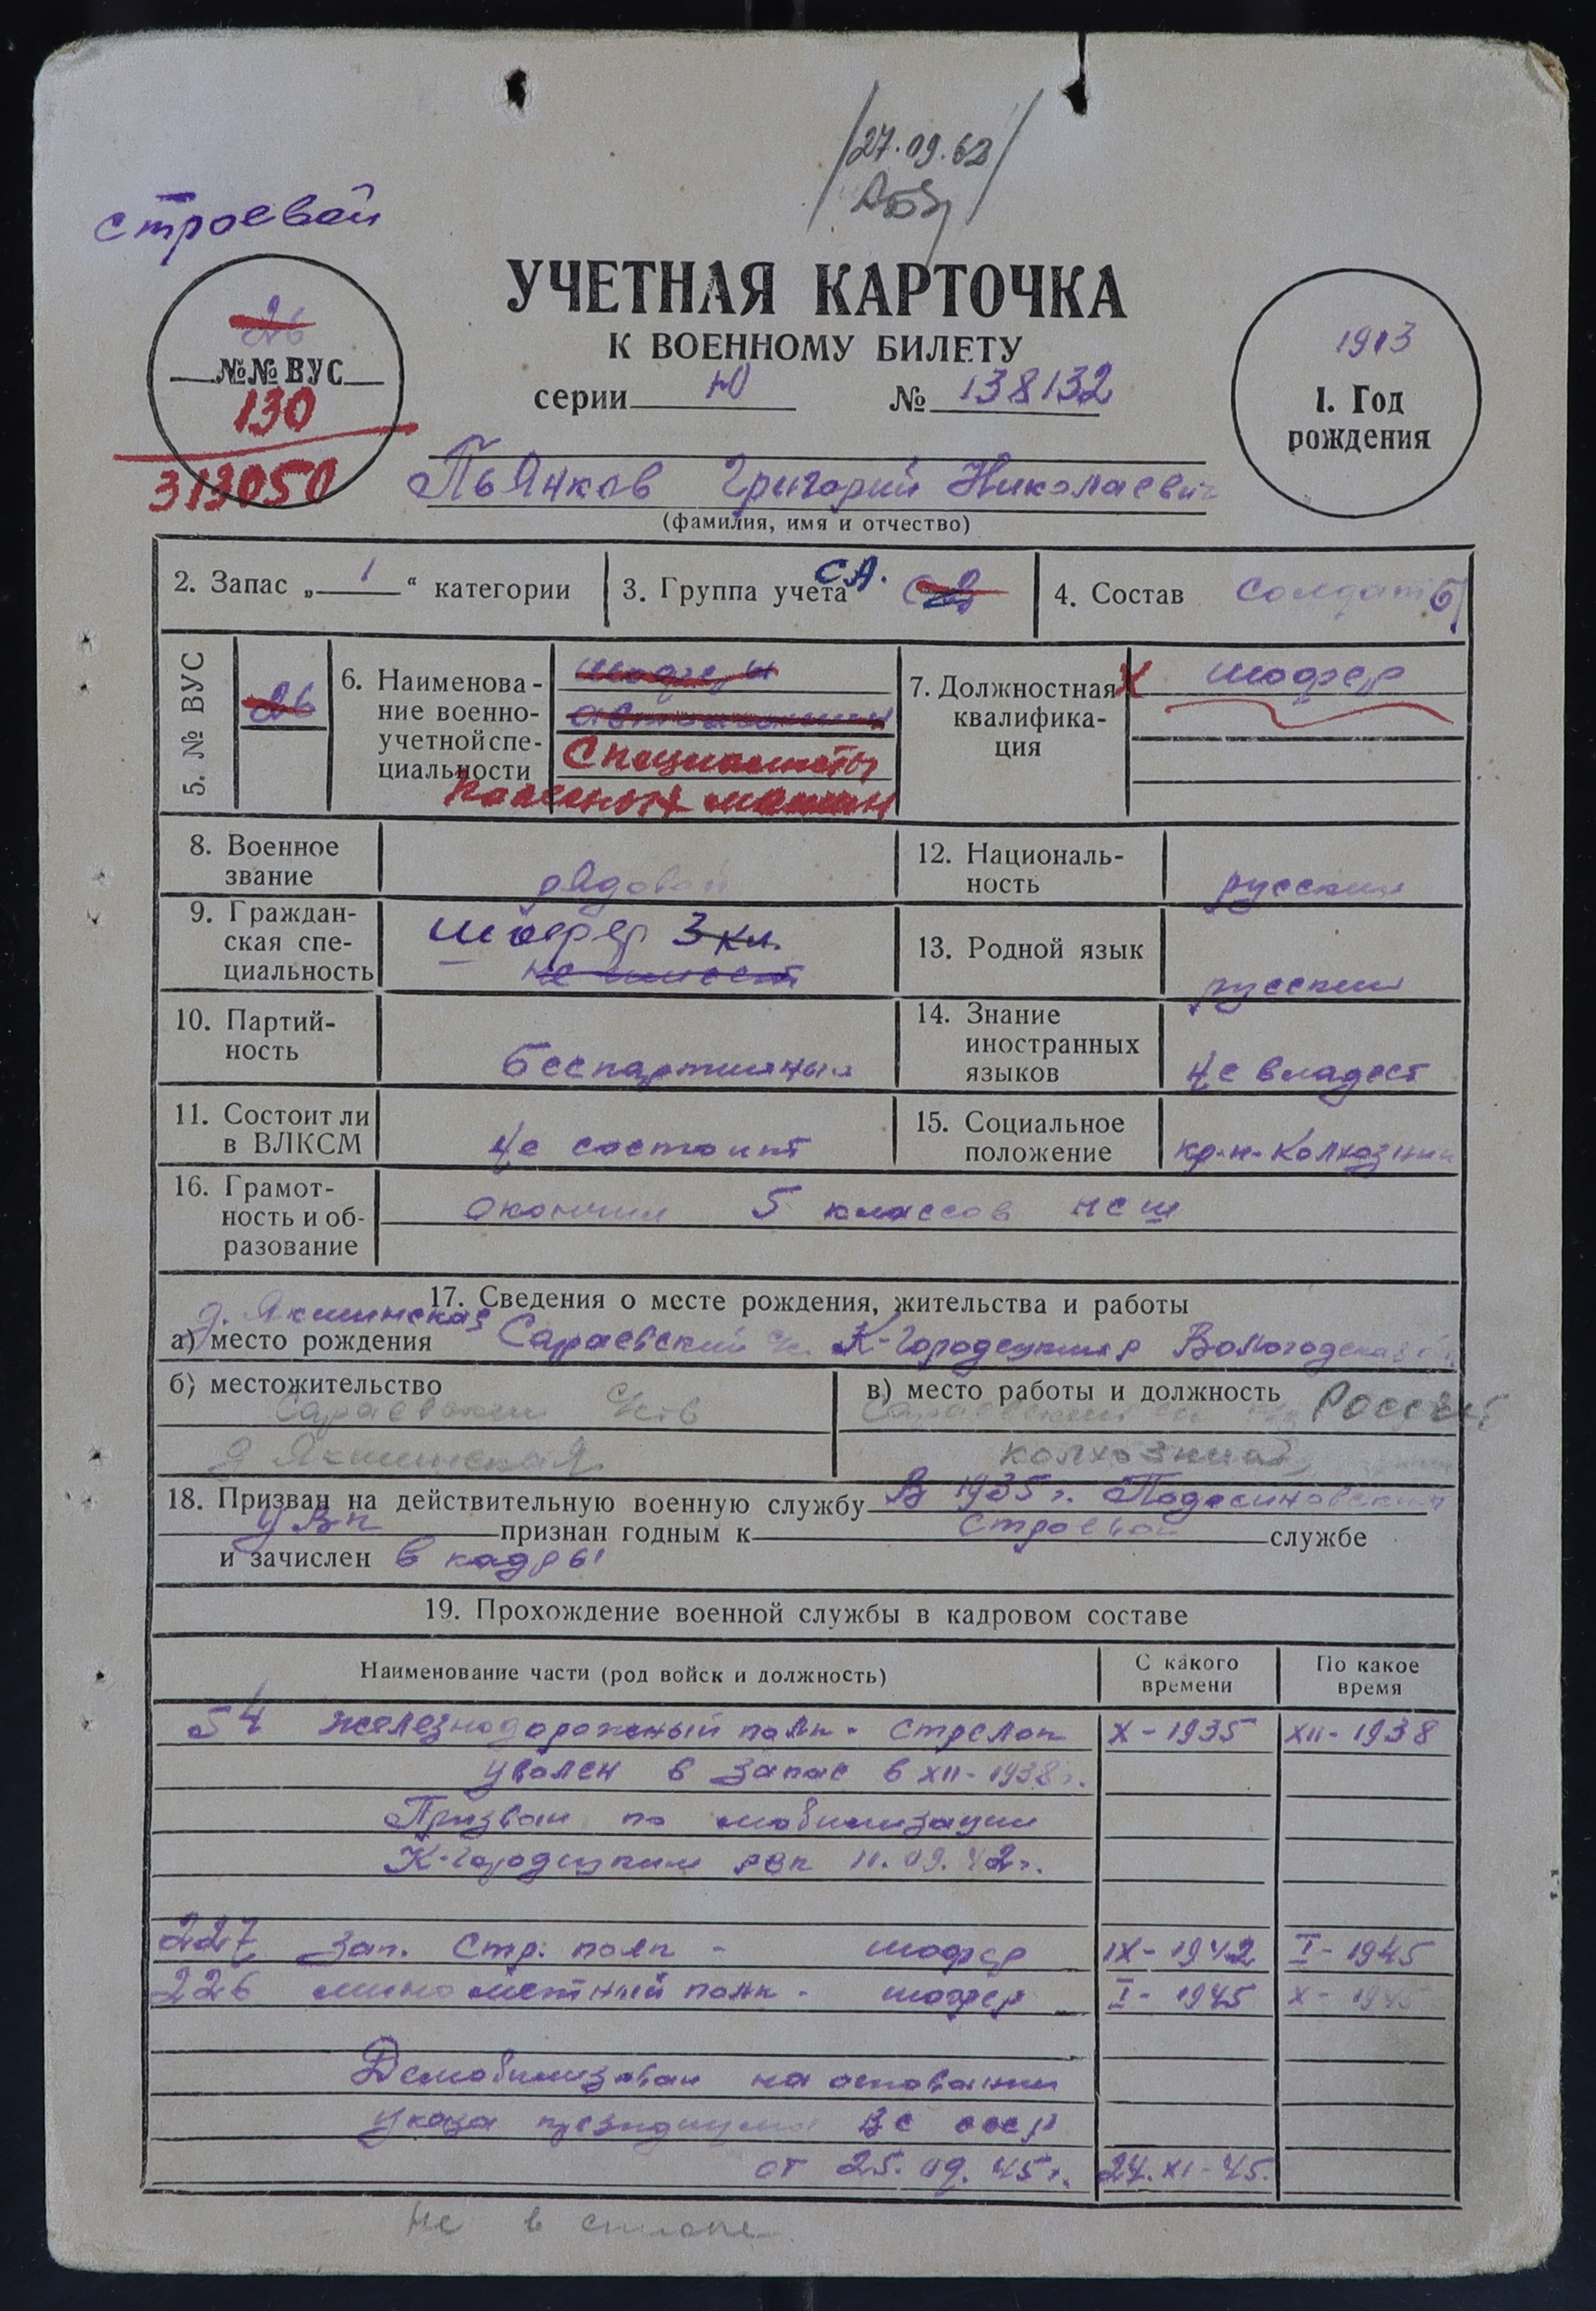 27.09.62
строевой
УЧЕТНАЯ КАРТОЧКА
К ВОЕННОМУ БИЛЕТУ
серии Ю № 138132
26
№№ ВУС
130
313050
1913
1. Год
рождения
Пьянков Григорий Николаевич
(фамилия, имя и отчество)
2. Запас „ 1 “ категории
3. Группа учета СА.
4. Состав солдаты
5. № ВУС 26
6. Наименова-
ние военно-
учетной спе-
циальности
шоферы
автомашин
Специалисты
колесных машин
7. Должностная
квалифика-
ция
шофер
8. Военное
звание
рядовой
12. Националь-
ность
русский
9. Граждан-
ская спе-
циальность
шофер 3 кл.
не имеет
13. Родной язык
русский
10. Партий-
ность
беспартийный
14. Знание
иностранных
языков
не владеет
11. Состоит ли
в ВЛКСМ
не состоит
15. Социальное
положение
кр-н-колхозник
16. Грамот-
ность и об-
разование
окончил 5 классов нсш
17. Сведения о месте рождения, жительства и работы
д. Якшинская
а) место рождения Сараевский К-Городецкий р Вологодская
б) местожительство
Сараевский с/сов
д Якшинская
в) место работы и должность
Россия
колхозник
18. Призван на действительную военную службу В 1935 г. Подосиновским
УВК признан годным к строевой службе
и зачислен в кадры
19. Прохождение военной службы в кадровом составе
Наименование части (род войск и должность)
С какого
времени
По какое
время
54 железнодорожный полк - стрелок X - 1935 XII - 1938
уволен в запас в XII - 1938 г.
Призван по мобилизации
К-Городецким рвк 11.09.42 г.
227 зап. стр. полк - шофер IX - 1942 I - 1945
226 минометный полк - шофер I - 1945 X - 1945
Демобилизован на основании
указа президиума ВС СССР
от 25.09.45 г. 24.XI-45.
не в